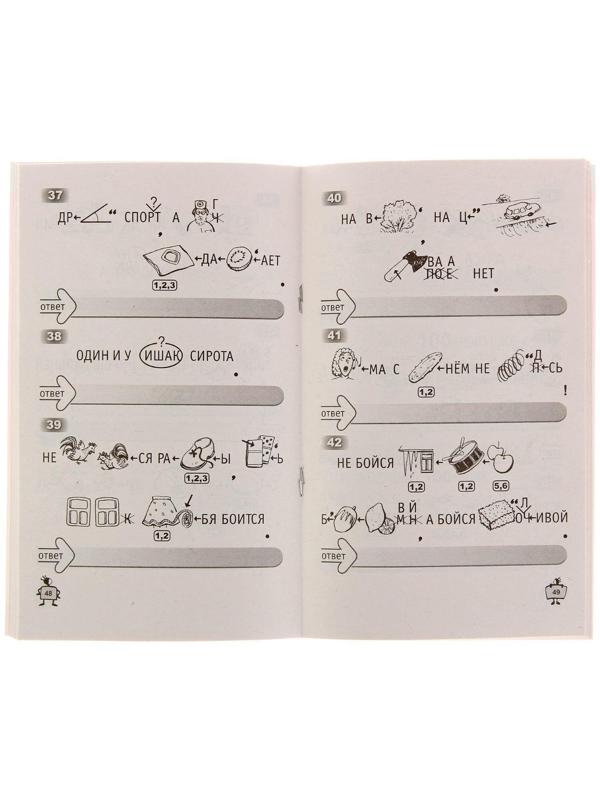 37
?
ДР “ СПОРТ А Г Ч
,
ДА ‘ АЕТ
1,2,3
.
ответ
38
?
ОДИН И У ИШАК СИРОТА
.
ответ
39
НЕ СЯ РА Ы , Ь
1,2,3
К БЯ БОИТСЯ
1,2
.
ответ
48
40
НА В ‘ НА Ц ”
,
ВА А
ПО Е НЕТ
.
ответ
41
МА С НЁМ НЕ “ Д
П СЬ
1,2
!
ответ
42
НЕ БОЙСЯ
1,2 1,2 5,6
В Й “ Л
Б М Н А БОЙСЯ О Ч ИВОЙ
,
.
ответ
49